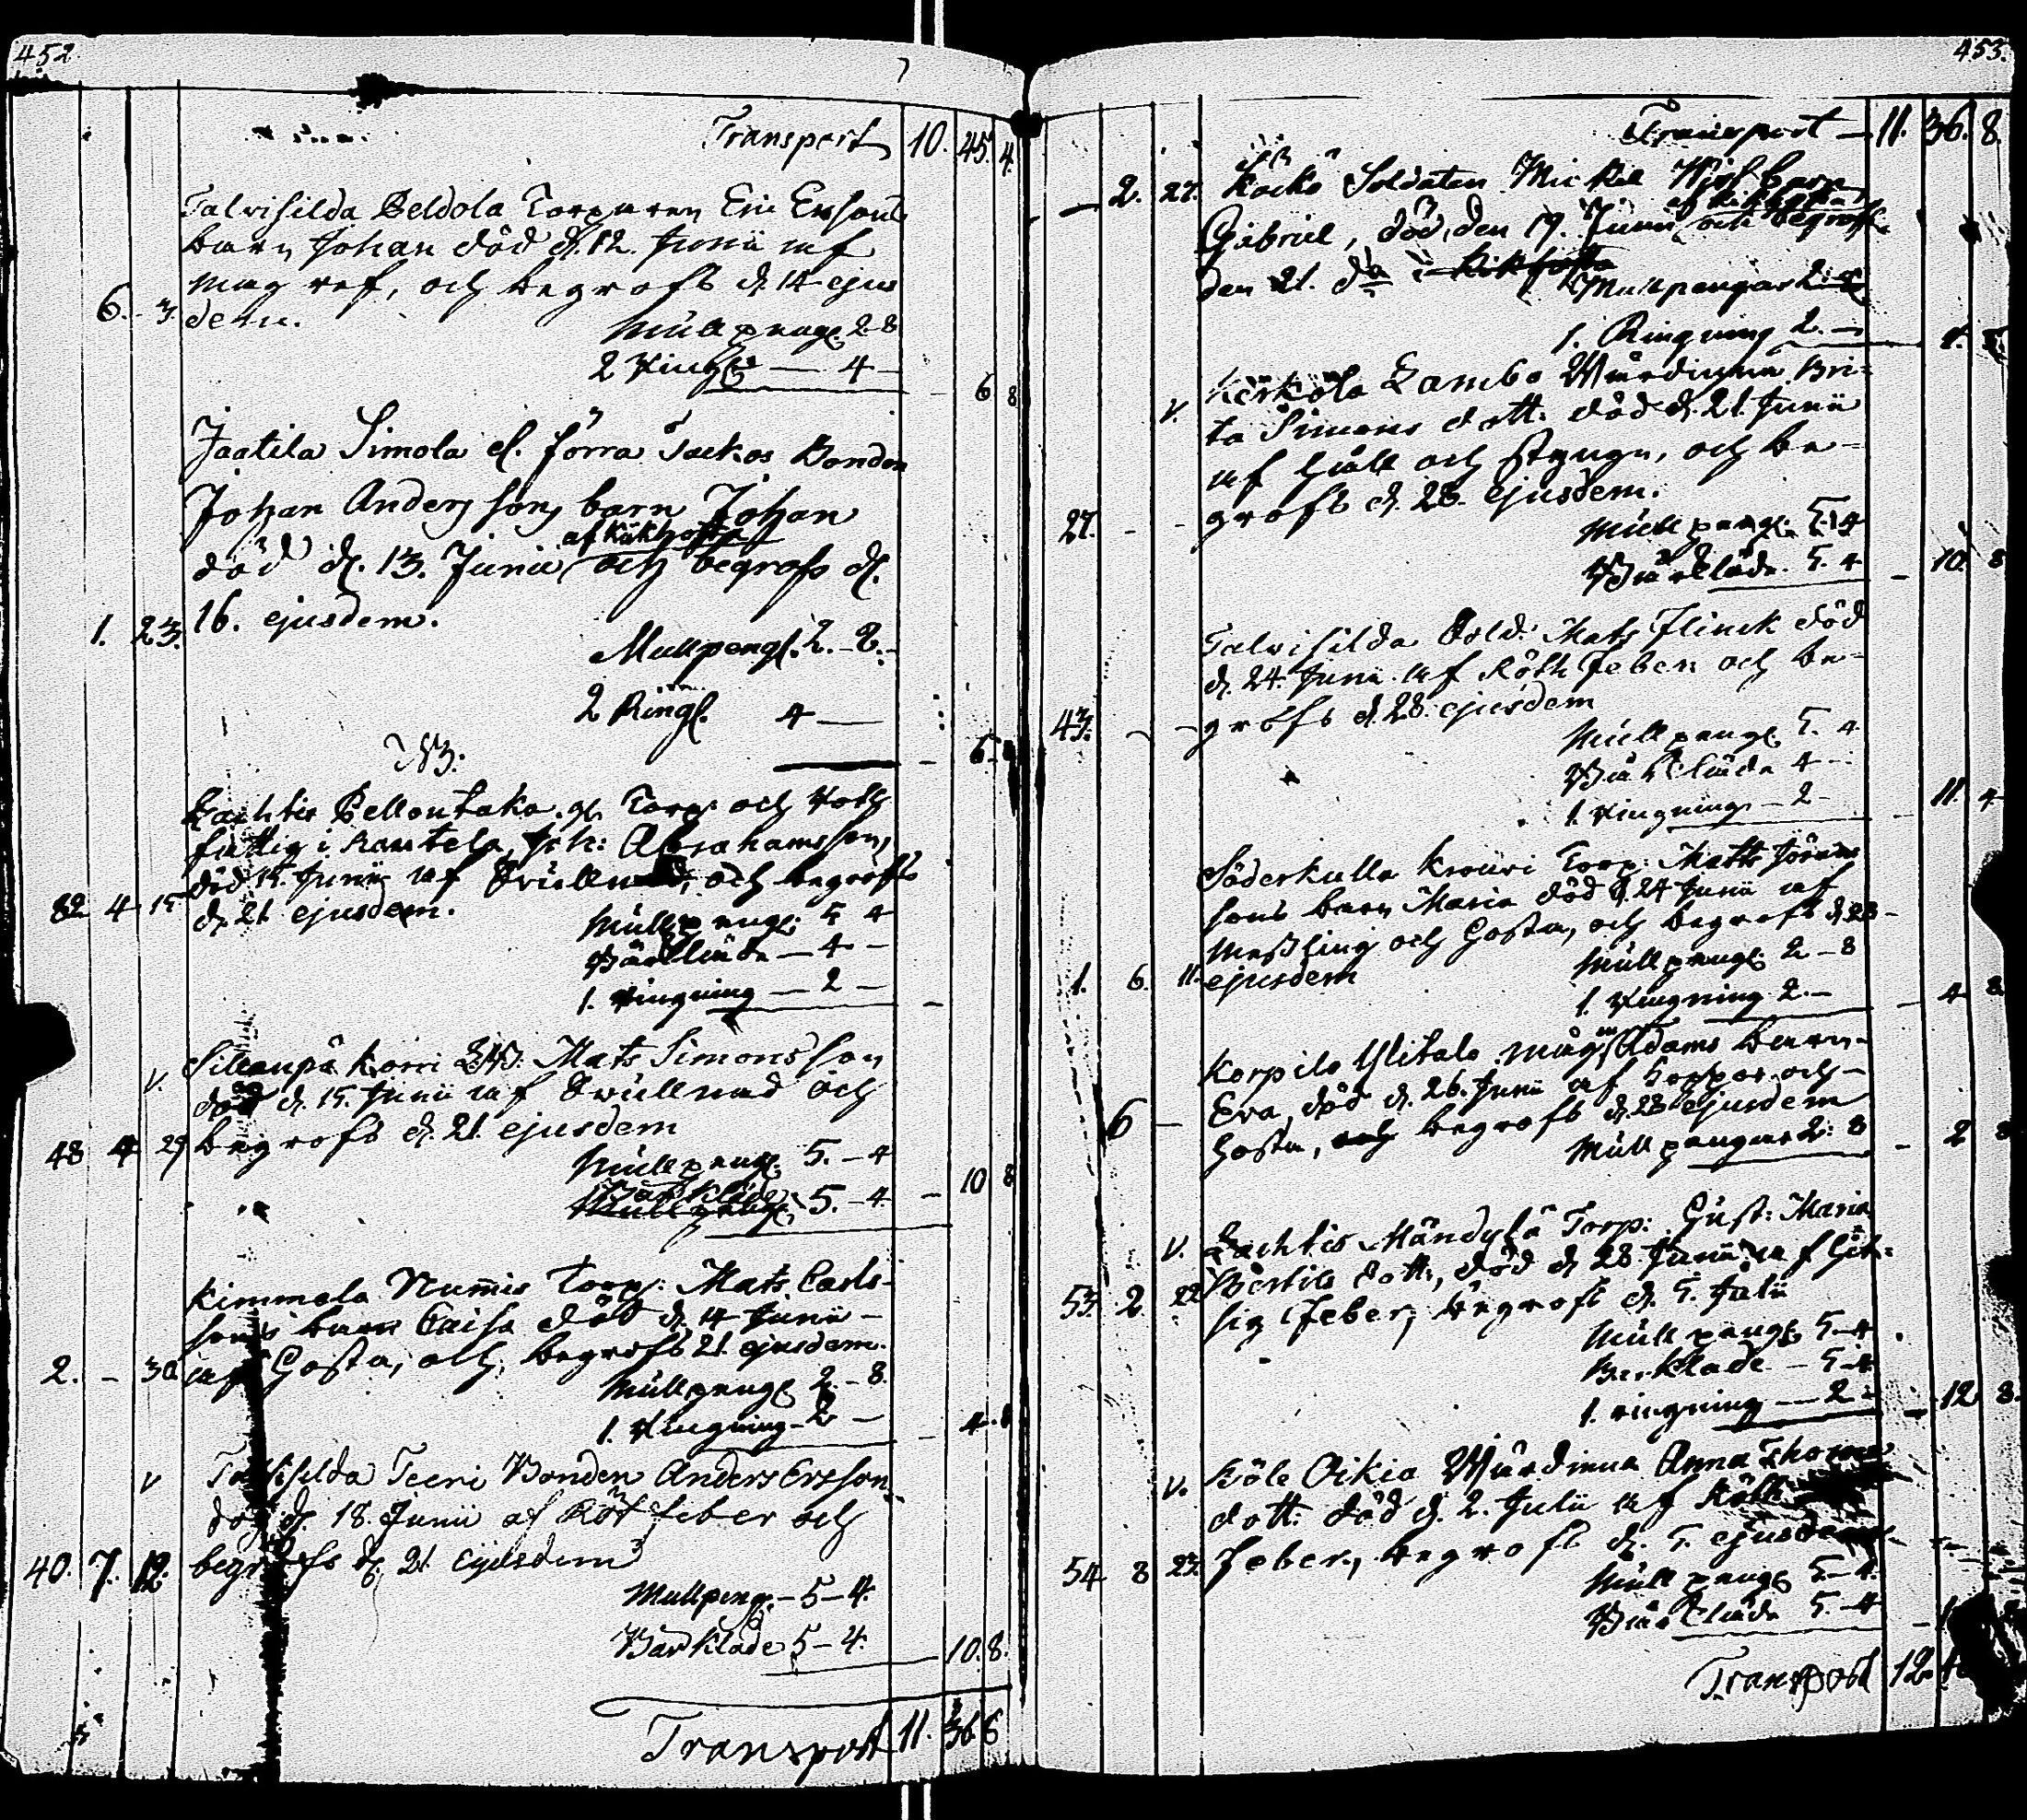 452
Transport 10. 45. 4.
Talvisilda Peldola Torparen Eric Ersons
barn Johan död d. 12. Junii af
mag ref, och begrofs d. 14 ejus
6. - 3. dem.
Mullpeng. 2 8
2 Ringg. — 4 —
6 8
Jaatila Simola el. förra Backos Bonden
Johan Anders sons barn Johan
af Kikhosta
död d. 13. Junii och begrofs d.
1. 23. 16. ejusdem.
Mullpeng. 2. - 8. -
2 Ringg. 4 —
NB. — 6.
Torp. och Rothe
fattig i Kautela, Joh: Abrahamsson,
död 15. Junii af och begrofs
82 4 15 d. 21 ejusdem.
Mullpeng. 5 4
Bårkläde — 4 —
1. Ringning — 2 —
v. Sillanpä Korri Mats Simonsson
död d. 15. Junii af och
48 4 29 begrofs d. 21. ejusdem
Mullpeng. 5. - 4
Bårkläde 5. - 4. — 10 8
Kimmola Nummis Torp. Mats Carls-
sons barn Caisa död d. 14 Junii -
2. - 30 af Hosta, och begrofs 21. ejusdem.
Mullpeng. 2. - 8.
1. Ringning - 2 — — 4. 8
v Talvisilda Teeri Bonden Anders Ersson
död d. 18. Junii af Rötfeber och
40. 7. 12. begrofs d. 21 ejusdem
Mullpeng. - 5 - 4.
Bårkläde 5 - 4. 10. 8.
Transport 11. 36 6
453.
Transport — 11. 36. 8.
2. 27. Soldaten Mickel barn
af Kikhosta
Gabriel, död, den 19. Junii och begrofs
den 21. do
Mullpengar 2. 8
1. Ringning 2. — 4. 8
Kerkola Lambo Wärdinna Bri-
v. ta Simons dott. död d. 21. Junii
af håll och styng, och be-
27. - - grofs d. 28. ejusdem.
Mullpeng. 5. 4
Bårkläde. 5. 4 — 10. 8
Talvisilda Sold. Mats Flinck död
d. 24. Junii af Röth Feber och be-
43. - - grofs d. 28. ejusdem
Mullpeng. 5. 4
Bårkläde 4 —
1. Ringning. — 2 — — 11. 4
Söderkulla Krouvi Torp. Matts Jörans
sons barn Maria död d. 24 Junii af
Meßling och Hosta, och begrofs d. 28 -
1. 6. 11. ejusdem
Mullpeng. 2 - 8
1. Ringning 2. — — 4 8.
Korpila Ylitalo mågen Adams barn
Eva, död d. 26. Junii af koppor och
6 — Hosta, begrofs d. 28 ejusdem
Mullpengar 2: 8 — 2 8
v. Lachtis Mändylä Torp: Gust: Maria
Bertils dott., död d. 28. Junii af Hit-
53. 2. 22 sig Feber, begrofs d. 5. Julii
Mullpeng. 5 - 4
Barkläde — 5 - 4
1. ringning — 2 — — 12 8.
v. Böle Oikia Wärdinna Anna Thomas
dott. död d. 2. Julii af Röth
54 8 23. Feber, begrofs d. 5. ejusdem
Mullpeng. 5 - 4.
Bårkläde 5. - 4
Transport 12.